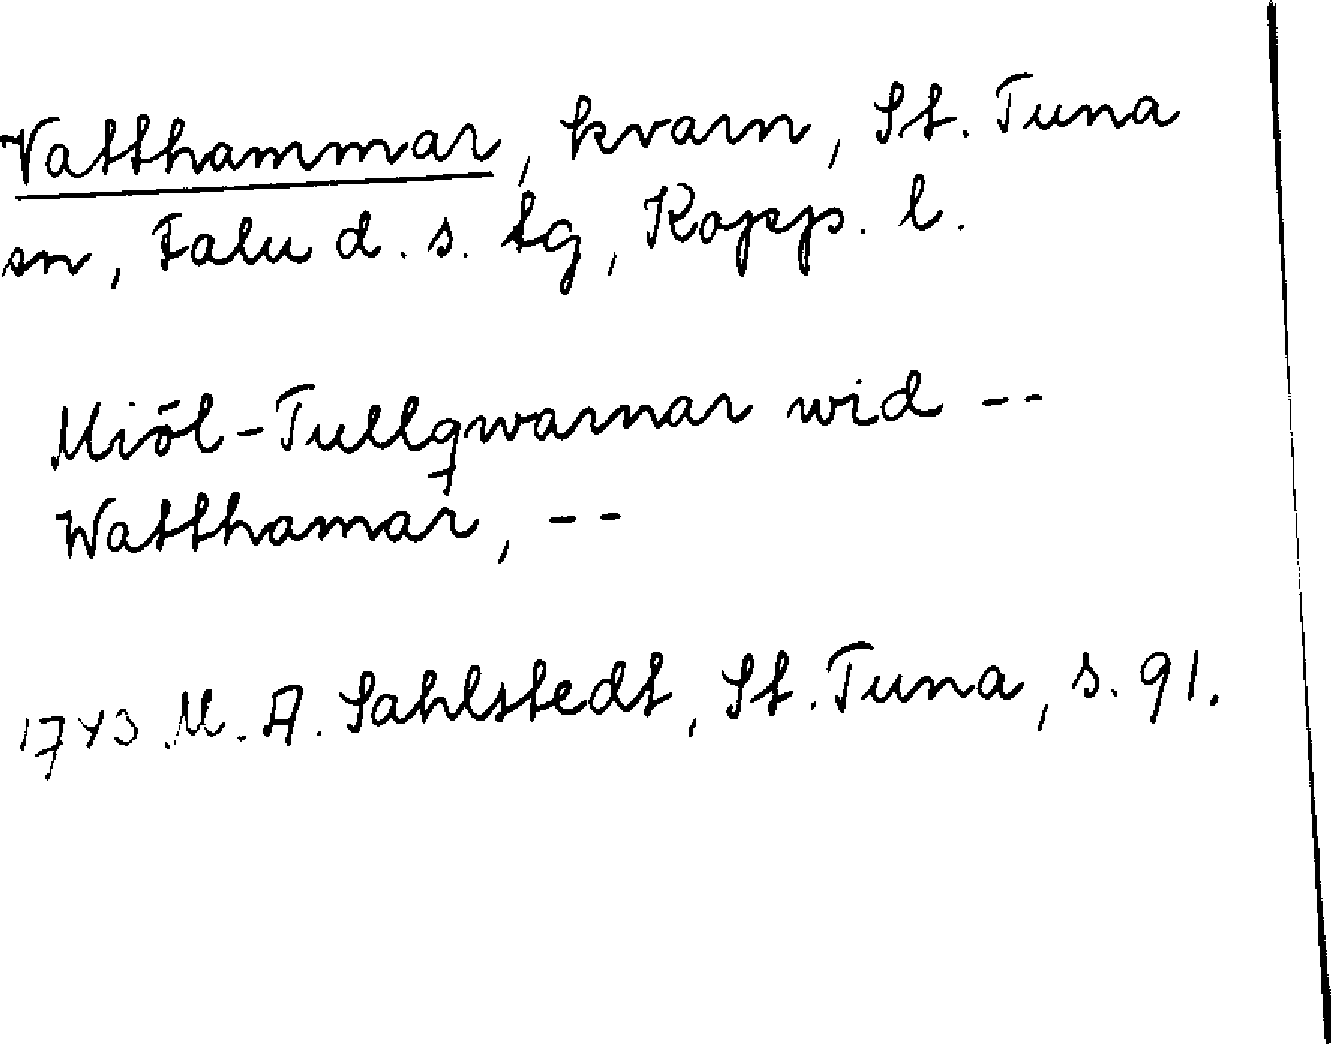 Vatthammar, kvarn, St. Tuna
sn, Falu d. s. tg, Kopp. l.
Miöl-Tullqwarnar wid --
Watthamar, --
1743 M. A. Sahlstedt, St. Tuna, s. 91.